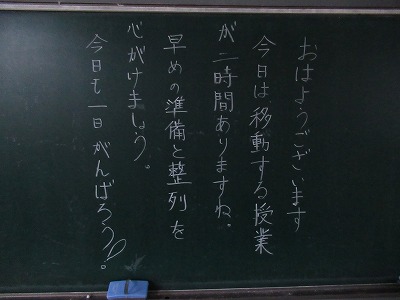 おはようございます
今日は移動する授業
が二時間ありますね。
早めの準備と整列を
心がけましょう。
今日も一日がんばろう。